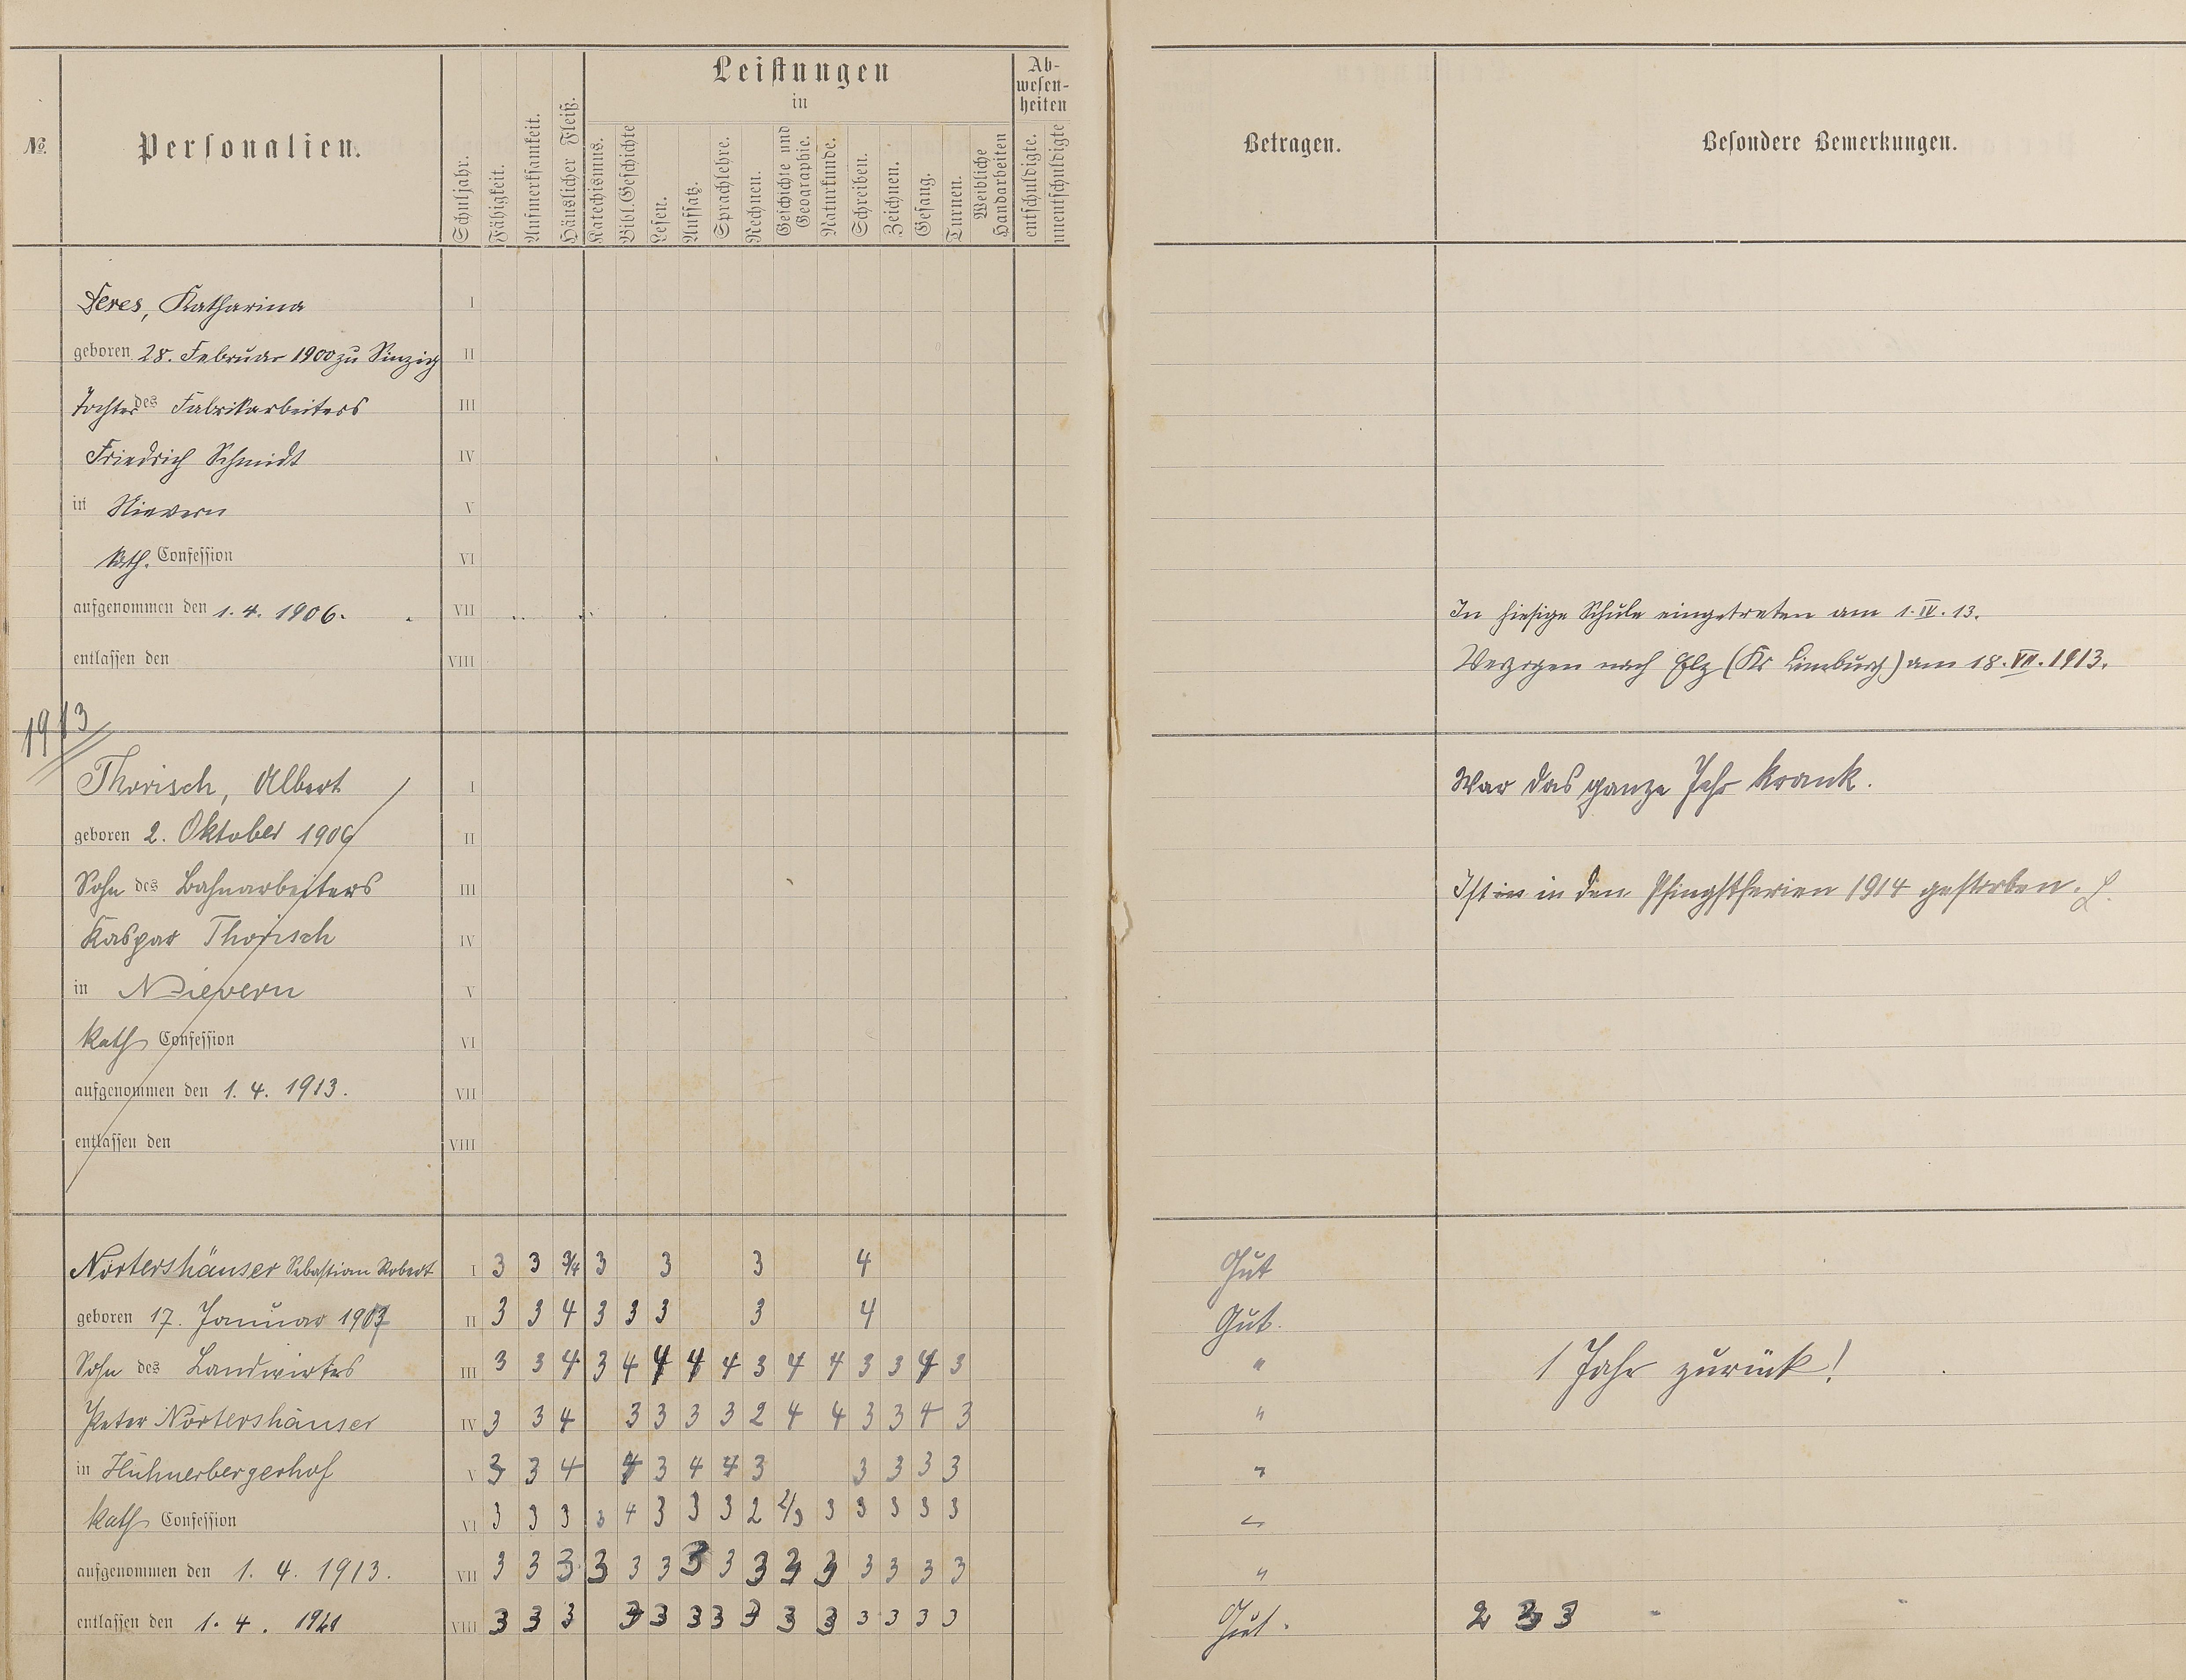 №
Personalien.
Schuljahr.
Fähigkeit.
Aufmerksamkeit.
Häuslicher Fleiß.
Leistungen
in
Katechismus.
Bibl. Geschichte
Lesen.
Aufsatz.
Sprachlehre.
Rechnen.
Geschichte und Geographie.
Naturkunde.
Schreiben.
Zeichnen.
Gesang.
Turnen.
Weibliche Handarbeiten
Ab-
wesen-
heiten
entschuldigte.
unentschuldigte
Betragen.
Besondere Bemerkungen.
Katharina I
geboren 28. Februar 1900 zu Sinzig II
Tochter des Fabrikarbeiters III
Friedrich Schmidt IV
in Nievern V
kath. Confession VI
aufgenommen den 1. 4. 1906. VII In hiesige Schule eingetreten am 1. IV. 13.
entlassen den VIII Verzogen nach Elz (Kr Limburg) am 18. VII. 1913.
1913
Thorisch, Albert I War das ganze Jahr krank.
geboren 2. Oktober 1906 II
Sohn des Bahnarbeiters III Ist in den Pfingstferien 1914 gestorben.
Kaspar Thorisch IV
in Nievern V
kath Confession VI
aufgenommen den 1. 4. 1913. VII
entlassen den VIII
Nörtershäuser Sebastian Robert I 3 3 3/4 3 3 3 4 Gut
geboren 17. Januar 1907 II 3 3 4 3 3 3 3 4 Gut.
Sohn des Landwirtes III 3 3 4 3 4 4 4 4 3 4 4 3 3 4 3 " 1 Jahr zurück!
Peter Nörtershäuser IV 3 3 4 3 3 3 3 2 4 4 3 3 4 3 "
in Hühnerbergerhof V 3 3 4 4 3 4 4 3 3 3 3 3 "
kath Confession VI 3 3 3 3 4 3 3 3 2 2/3 3 3 3 3 3 "
aufgenommen den 1. 4. 1913. VII 3 3 3 3 3 3 3 3 3 3 3 3 3 3 3 "
entlassen den 1. 4. 1921 VIII 3 3 3 3 3 3 3 3 3 3 3 3 3 3 Gut. 2 3 3